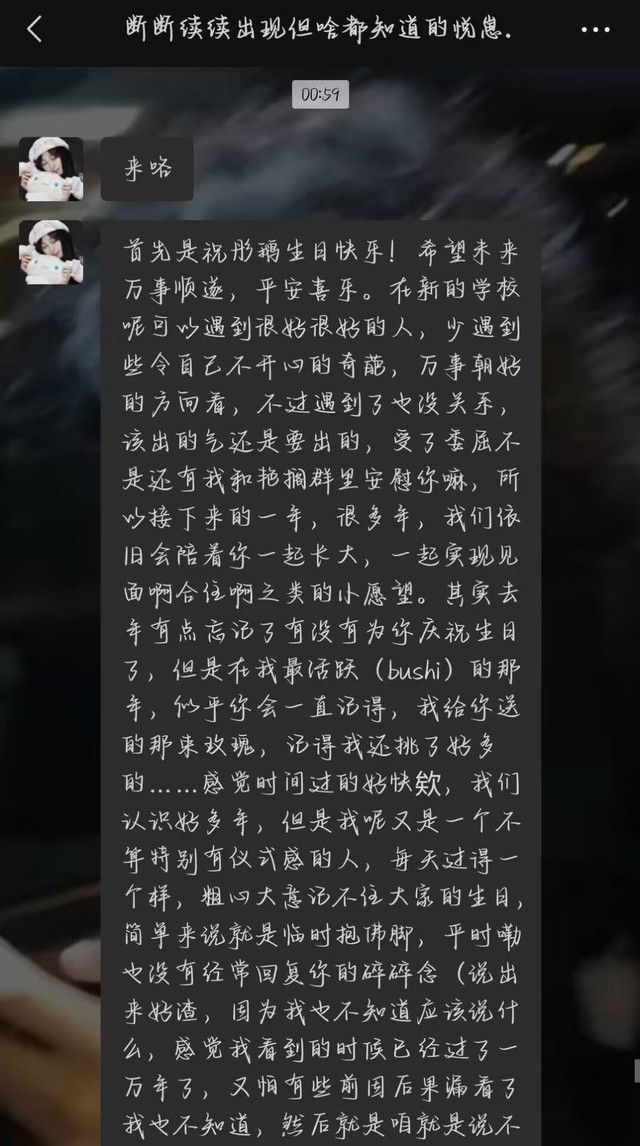 断断续续出现但啥都知道的悦崽.
00:59
来咯
首先是祝彤璃生日快乐！希望未来
万事顺遂，平安喜乐。在新的学校
呢可以遇到很好很好的人，少遇到
些令自己不开心的奇葩，万事朝好
的方向看，不过遇到了也没关系，
该出的气还是要出的，受了委屈不
是还有我和艳搁群里安慰你嘛，所
以接下来的一年，很多年，我们依
旧会陪着你一起长大，一起实现见
面啊合住啊之类的小愿望。其实去
年有点忘记了有没有为你庆祝生日
了，但是在我最活跃（bushi）的那
年，似乎你会一直记得，我给你送
的那束玫瑰，记得我还挑了好多
的……感觉时间过的好快欸，我们
认识好多年，但是我呢又是一个不
算特别有仪式感的人，每天过得一
个样，粗心大意记不住大家的生日，
简单来说就是临时抱佛脚，平时嘞
也没有经常回复你的碎碎念（说出
来好渣，因为我也不知道应该说什
么，感觉我看到的时候已经过了一
万年了，又怕有些前因后果漏看了
我也不知道，然后就是咱就是说不